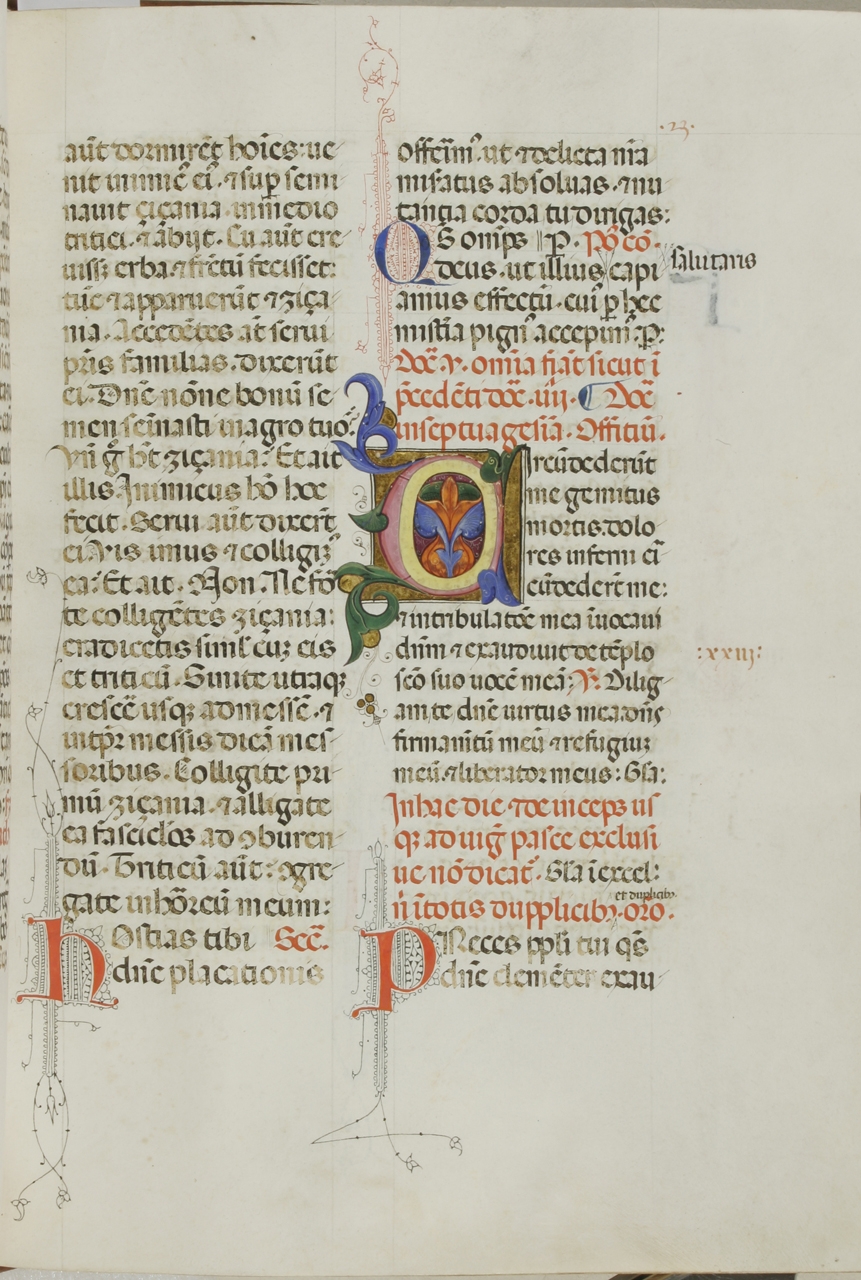 ·23·
aūt dormirēt hoīes: ue
nit inimic᷒ ei᷒ ⁊ sup̱ semi
nauit çiçania in medio
tritici. ⁊ abijt. Cū aūt cre
uiss; erba ⁊ fructū fecisset:
tūc ⁊ apparuerūt ⁊ ziça
nia. Accedētes at̄ serui
pr̄is familias. dixerūt
ei. Dn̄e nōne bonū se
men semīasti in agro tuo:
Vn̄ g̊ ht̄ ziçania: Et ait
illis. Inimicus hō hoc
fecit. Serui aūt dixerт̄
ei. Vis imus ⁊ colligim᷒
ea: Et ait. Non. Ne forte
te colligētes ziçania:
eradicetis siml̄ cuȝ eis
et triticū. Sinite utraqȝ
crescē usqȝ ad messē. ⁊
in tp̄r messis dicā mes
soribus. Colligite pri
mū ziçania. ⁊ alligate
ea fasciclos ad ɔburen
dū. Triticū aūt: ɔgre
gate in hōreū meum:
HOstias tibi Secͬ.
dn̄e placationis
offerim᷒. ut ⁊ delicta nr̄a
misatus absoluas. ⁊ nu
tantia corda tu dirigas:
QS omp̄s P. Pꝰ cō.
deus. ut illius capi
salutaris
amus effectū. cui᷒ p̱ hec
mistia pign᷒ accepim᷒. P:
Dōc̄. v. omīa fiāt sicut ī
p̄cedēti dōc̄. iiij. ¶ Dōc̄
in septuagesīa. Offitiū.
CIrcūdederūt
me gemitus
mortis. dolo
res inferni ci
cūdederт̄ me:
⁊ in tribulatōe mea īuocaui
dn̄m ⁊ exaudiuit de tēplo
:xxiij:
sc̄o suo uocē meā: V. Dilig
am te dn̄e uirtus mea dn̄s
firmam̄tū meū ⁊ refugiuȝ
meū. ⁊ liberator meus: Gl̄a:
In hac die ⁊ deinceps us
qȝ ad uiḡ pasce exclusi
ue nō dicat᷒. Gl̄a ī excel:
n̄ ī totis dupplicibȝ. or̄o.
et duplicibȝ
PReces ppl̄i tui qs̄
dn̄e clemēter exau